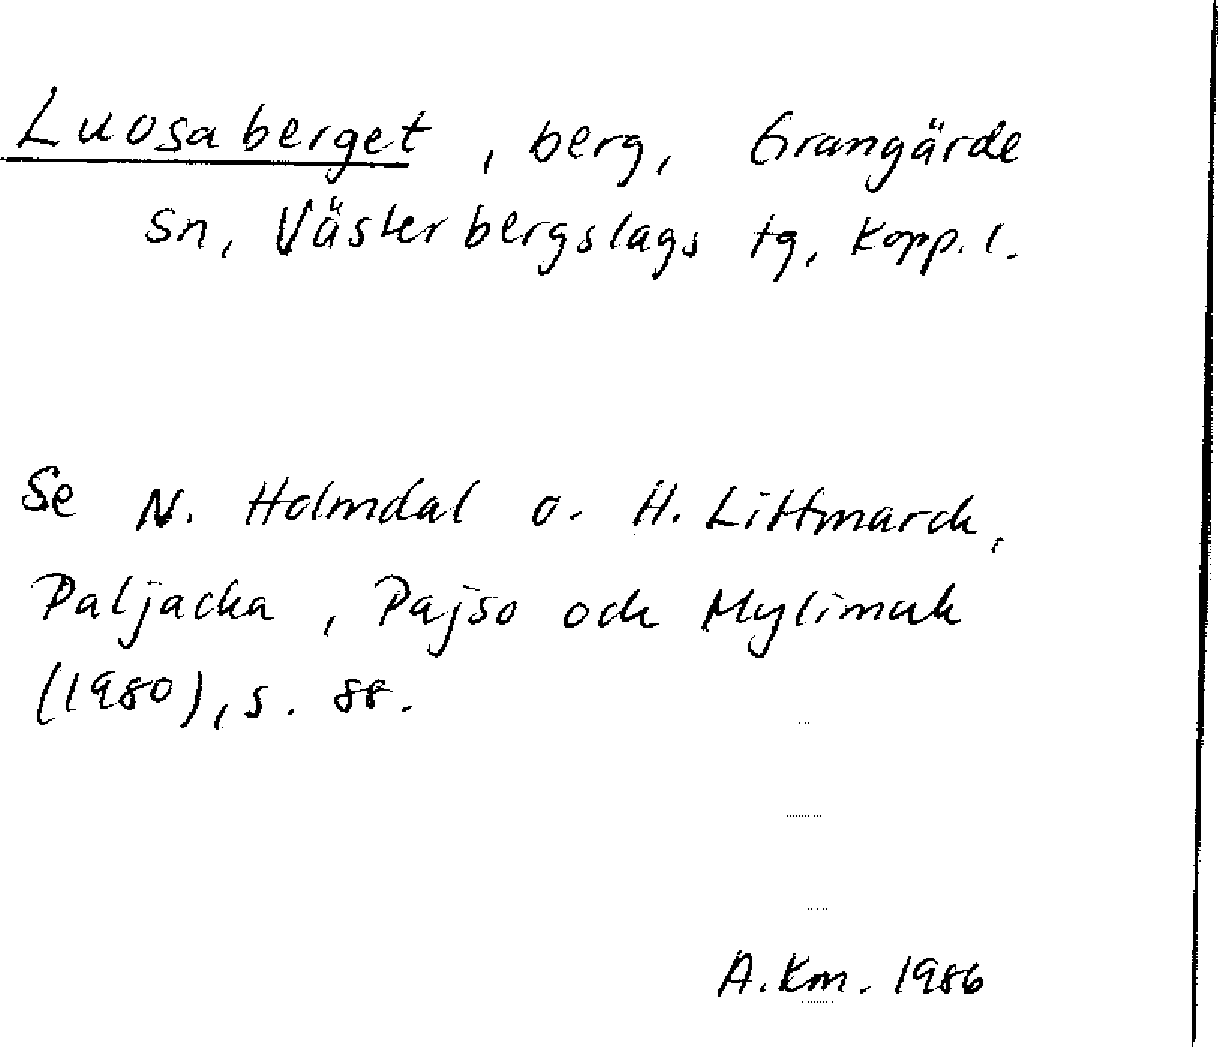 Luosaberget, berg, Grangärde
sn, Västerbergslags tg, Kopp. l.
Se N. Holmdal o. H. Littmarck,
Paljacka, Pajso och Mylimack
(1980), s. 88.
A.Km. 1986